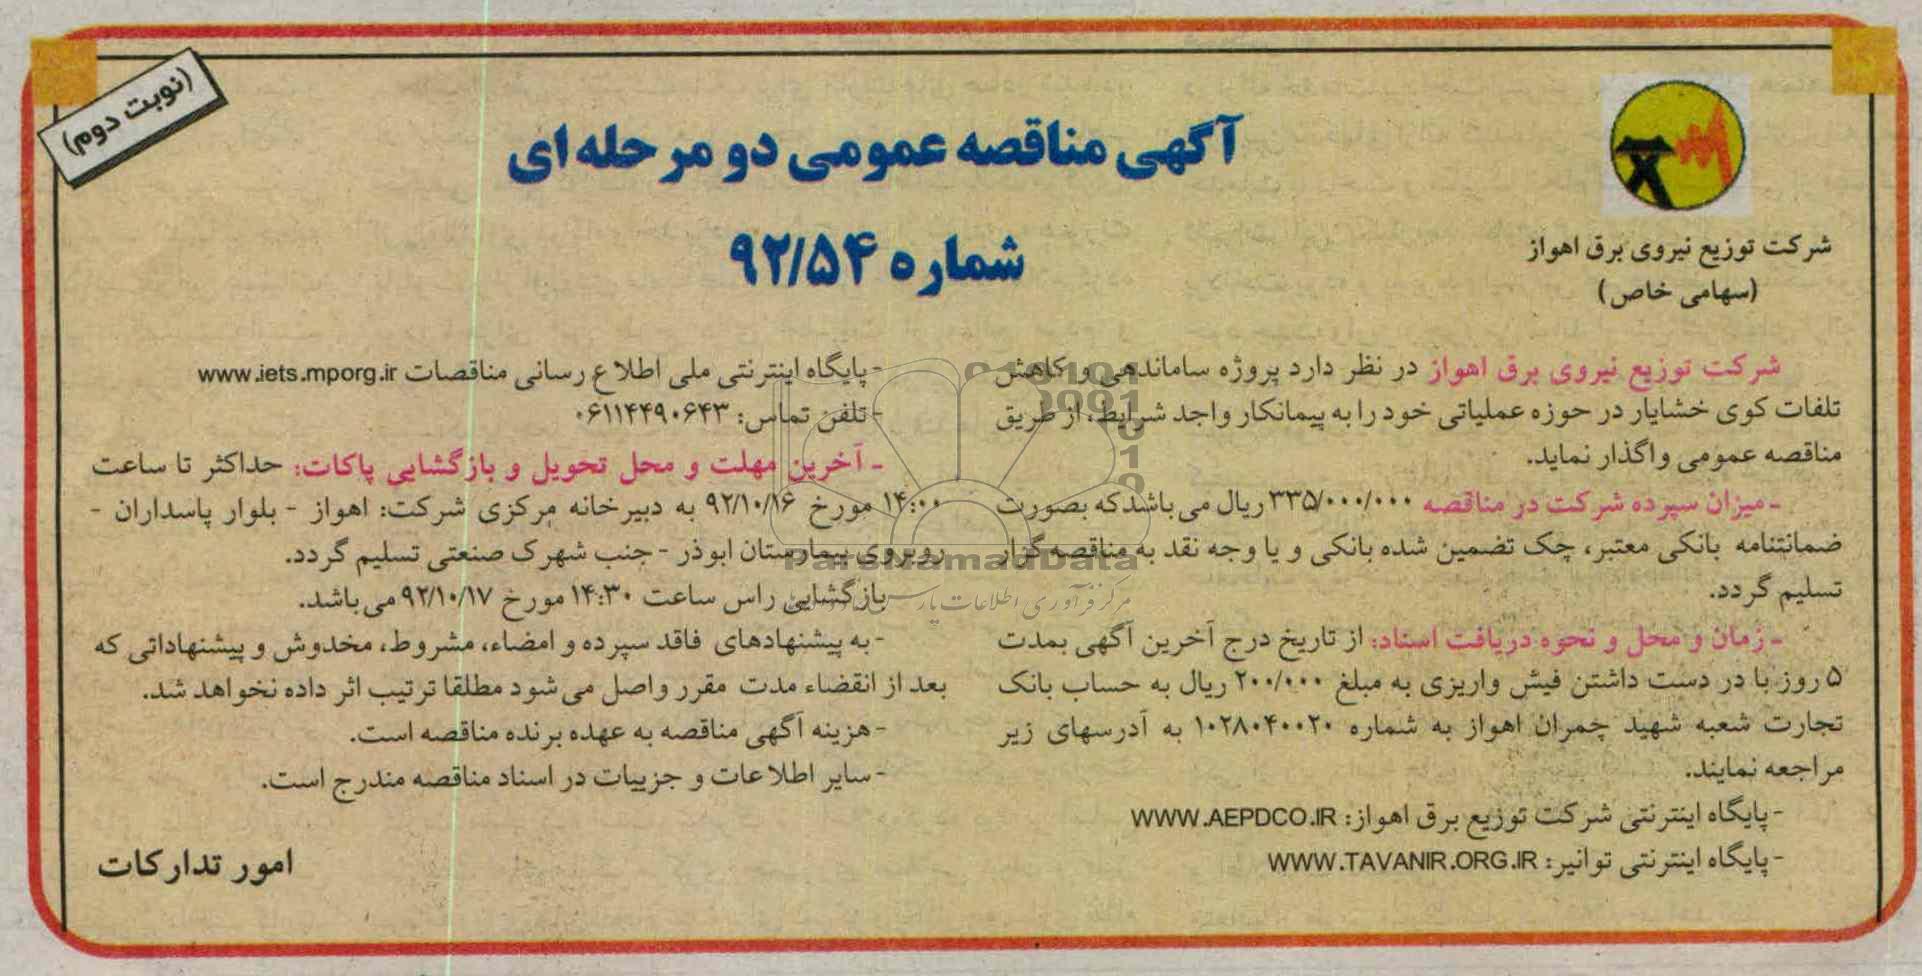 (نوبت دوم)
آگهی مناقصه عمومی دو مرحله ای
شماره ۹۲/۵۴
شرکت توزیع نیروی برق اهواز
(سهامی خاص)
شرکت توزیع نیروی برق اهواز در نظر دارد پروژه ساماندهی و کاهش
تلفات کوی خشایار در حوزه عملیاتی خود را به پیمانکار واجد شرایط، از طریق
مناقصه عمومی واگذار نماید.
- میزان سپرده شرکت در مناقصه ۳۳۵/۰۰۰/۰۰۰ ریال می باشد که بصورت
ضمانتنامه بانکی معتبر، چک تضمین شده بانکی و یا وجه نقد به مناقصه گزار
تسلیم گردد.
- زمان و محل و نحوه دریافت اسناد: از تاریخ درج آخرین آگهی بمدت
۵ روز با در دست داشتن فیش واریزی به مبلغ ۲۰۰/۰۰۰ ریال به حساب بانک
تجارت شعبه شهید چمران اهواز به شماره ۱۰۲۸۰۴۰۰۲۰ به آدرسهای زیر
مراجعه نمایند.
- پایگاه اینترنتی شرکت توزیع برق اهواز: WWW.AEPDCO.IR
- پایگاه اینترنتی توانیر: WWW.TAVANIR.ORG.IR
- پایگاه اینترنتی ملی اطلاع رسانی مناقصات www.iets.mporg.ir
- تلفن تماس: ۰۶۱۱۴۴۹۰۶۴۳
- آخرین مهلت و محل تحویل و بازگشایی پاکات: حداکثر تا ساعت
۱۴:۰۰ مورخ ۹۲/۱۰/۱۶ به دبیرخانه مرکزی شرکت: اهواز - بلوار پاسداران -
روبروی بیمارستان ابوذر - جنب شهرک صنعتی تسلیم گردد.
بازگشایی راس ساعت ۱۴:۳۰ مورخ ۹۲/۱۰/۱۷ می باشد.
- به پیشنهادهای فاقد سپرده و امضاء، مشروط، مخدوش و پیشنهاداتی که
بعد از انقضاء مدت مقرر واصل می شود مطلقا ترتیب اثر داده نخواهد شد.
- هزینه آگهی مناقصه به عهده برنده مناقصه است.
- سایر اطلاعات و جزییات در اسناد مناقصه مندرج است.
امور تدارکات
ParsNamadData